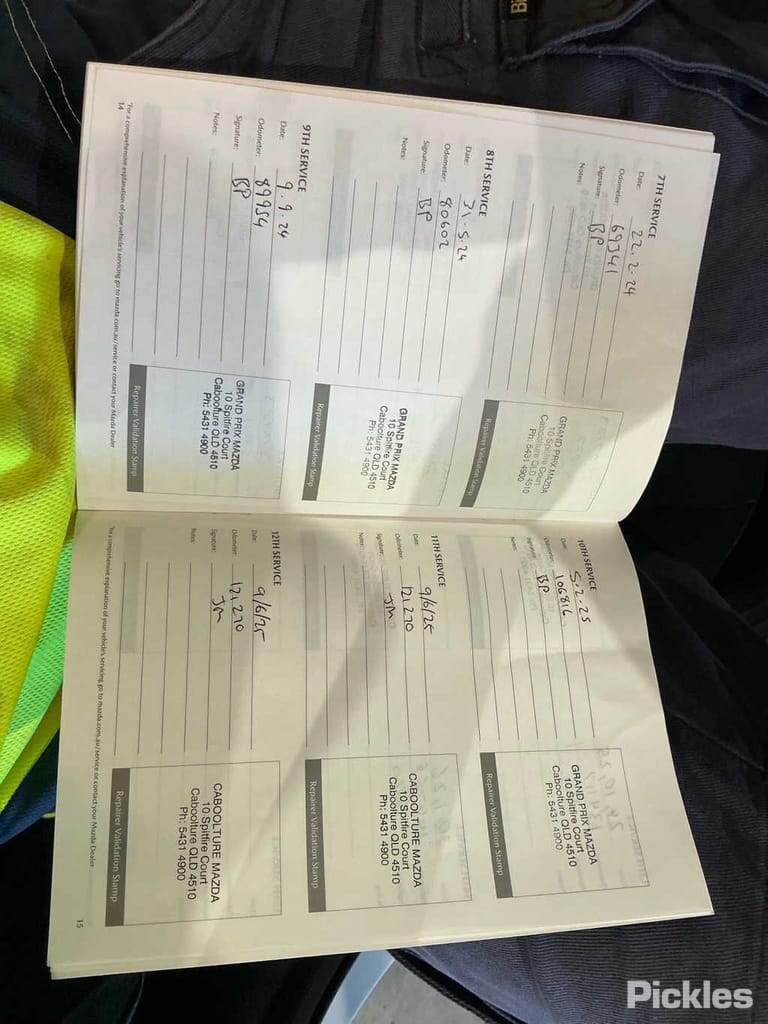 7TH SERVICE
Date: 22.2.24
Odometer: 69341
Signature: BP
Notes:
GRAND PRIX MAZDA
10 Spitfire Court
Caboolture QLD 4510
Ph: 5431 4900
Repairer Validation Stamp
8TH SERVICE
Date: 31.5.24
Odometer: 80602
Signature: BP
Notes:
GRAND PRIX MAZDA
10 Spitfire Court
Caboolture QLD 4510
Ph: 5431 4900
Repairer Validation Stamp
9TH SERVICE
Date: 9.9.24
Odometer: 89954
Signature: BP
Notes:
GRAND PRIX MAZDA
10 Spitfire Court
Caboolture QLD 4510
Ph: 5431 4900
Repairer Validation Stamp
*For a comprehensive explanation of your vehicle's servicing go to mazda.com.au/service or contact your Mazda Dealer
14
10TH SERVICE
Date: 5.2.25
Odometer: 106816
Signature: BP
Notes:
GRAND PRIX MAZDA
10 Spitfire Court
Caboolture QLD 4510
Ph: 5431 4900
Repairer Validation Stamp
11TH SERVICE
Date: 9/6/25
Odometer: 121,270
Signature: JM
Notes:
CABOOLTURE MAZDA
10 Spitfire Court
Caboolture QLD 4510
Ph: 5431 4900
Repairer Validation Stamp
12TH SERVICE
Date: 9/6/25
Odometer: 121,270
Signature: JM
Notes:
CABOOLTURE MAZDA
10 Spitfire Court
Caboolture QLD 4510
Ph: 5431 4900
Repairer Validation Stamp
*For a comprehensive explanation of your vehicle's servicing go to mazda.com.au/service or contact your Mazda Dealer
15
Pickles